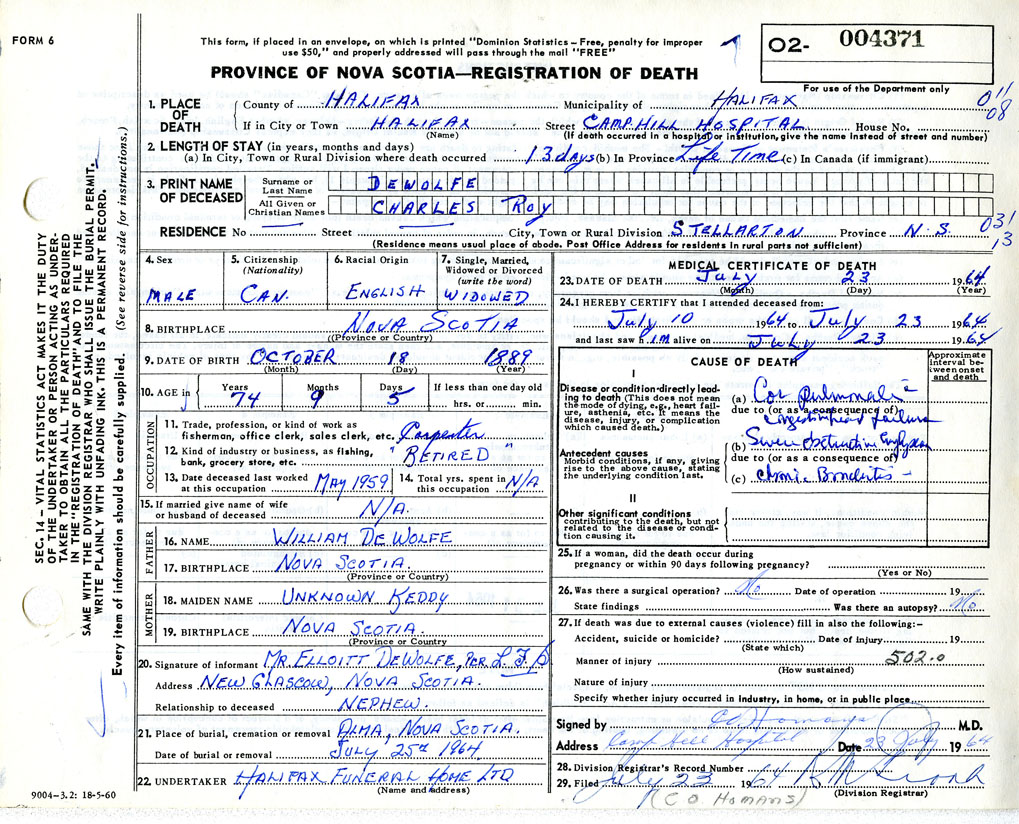 FORM 6
This form, if placed in an envelope, on which is printed "Dominion Statistics – Free, penalty for improper
use $50," and properly addressed will pass through the mail "FREE"
O2- 004371
For use of the Department only
PROVINCE OF NOVA SCOTIA—REGISTRATION OF DEATH
011
08
1. PLACE OF DEATH
County of HALIFAX Municipality of HALIFAX
If in City or Town HALIFAX Street CAMP HILL HOSPITAL House No.
(Name) (If death occurred in a hospital or institution, give the name instead of street and number)
2. LENGTH OF STAY (in years, months and days)
(a) In City, Town or Rural Division where death occurred 13 days (b) In Province Life Time (c) In Canada (if immigrant)
3. PRINT NAME OF DECEASED
Surname or Last Name DEWOLFE
All Given or Christian Names CHARLES ROY
RESIDENCE No Street City, Town or Rural Division STELLARTON Province N.S.
031
13
(Residence means usual place of abode. Post Office Address for residents in rural parts not sufficient)
4. Sex MALE
5. Citizenship (Nationality) CAN.
6. Racial Origin ENGLISH
7. Single, Married, Widowed or Divorced (write the word) WIDOWED
8. BIRTHPLACE NOVA SCOTIA
(Province or Country)
9. DATE OF BIRTH OCTOBER 18 1889
(Month) (Day) (Year)
10. AGE in Years 74 Months 9 Days 5 If less than one day old hrs. or min.
OCCUPATION
11. Trade, profession, or kind of work as
fisherman, office clerk, sales clerk, etc. Carpenter
12. Kind of industry or business, as fishing,
bank, grocery store, etc. " RETIRED "
13. Date deceased last worked at this occupation MAY 1959
14. Total yrs. spent in this occupation N/A
15. If married give name of wife
or husband of deceased N/A.
FATHER
16. NAME WILLIAM DEWOLFE
17. BIRTHPLACE NOVA SCOTIA.
(Province or Country)
MOTHER
18. MAIDEN NAME UNKNOWN KEDDY
19. BIRTHPLACE NOVA SCOTIA.
(Province or Country
20. Signature of informant MR. ELLOITT DEWOLFE, PER L.F.
Address NEW GLASCOW, NOVA SCOTIA.
Relationship to deceased NEPHEW.
21. Place of burial, cremation or removal ALMA, NOVA SCOTIA.
Date of burial or removal JULY 25th 1964
22. UNDERTAKER HALIFAX FUNERAL HOME LTD
(Name and address)
9004–3.2: 18-5-60
MEDICAL CERTIFICATE OF DEATH
23. DATE OF DEATH July 23 1964
(Month) (Day) (Year)
24. I HEREBY CERTIFY that I attended deceased from:
July 10 1964 to July 23 1964
and last saw h im alive on July 23 1964
CAUSE OF DEATH
Approximate interval between onset and death
I
Disease or condition directly leading to death (This does not mean the mode of dying, e.g., heart failure, asthenia, etc. It means the disease, injury, or complication which caused death.)
(a) Cor pulmonale
due to (or as a consequence of)
congestive heart failure
Antecedent causes
Morbid conditions, if any, giving rise to the above cause, stating the underlying condition last.
(b) Severe obstructive Emphysema
due to (or as a consequence of)
(c) Chronic Bronchitis
II
Other significant conditions
contributing to the death, but not related to the disease or condition causing it.
25. If a woman, did the death occur during
pregnancy or within 90 days following pregnancy?
(Yes or No)
26. Was there a surgical operation? No Date of operation 19
State findings Was there an autopsy? No
27. If death was due to external causes (violence) fill in also the following:–
Accident, suicide or homicide? Date of injury 19
(State which)
Manner of injury 502.0
(How sustained)
Nature of injury
Specify whether injury occurred in industry, in home, or in public place
Signed by CO Homans M.D.
Address Camp Hill Hospital Date 23 July 1964
28. Division Registrar's Record Number
29. Filed July 23 1964
(Division Registrar)
(C O HOMANS)
SEC. 14 – VITAL STATISTICS ACT MAKES IT THE DUTY
OF THE UNDERTAKER OR PERSON ACTING AS UNDER-
TAKER TO OBTAIN ALL THE PARTICULARS REQUIRED
IN THE "REGISTRATION OF DEATH" AND TO FILE THE
SAME WITH THE DIVISION REGISTRAR WHO SHALL ISSUE THE BURIAL PERMIT.
WRITE PLAINLY WITH UNFADING INK. THIS IS A PERMANENT RECORD.
Every item of information should be carefully supplied. (See reverse side for instructions.)